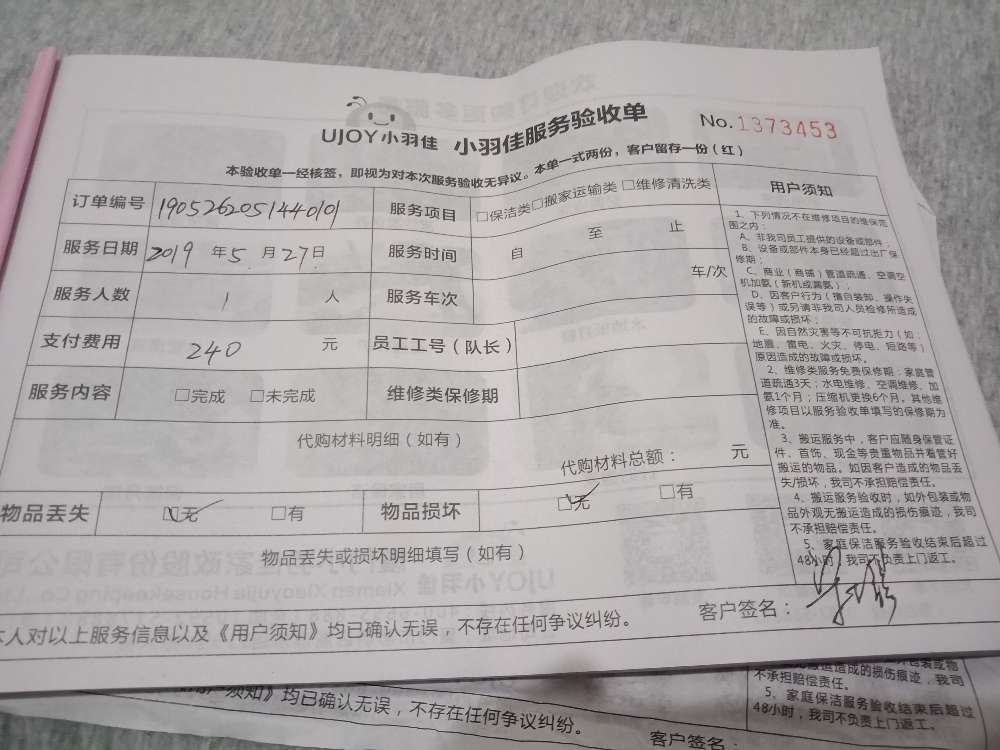 UJOY小羽佳 小羽佳服务验收单 No.1373453
本验收单一经核签，即视为对本次服务验收无异议。本单一式两份，客户留存一份（红）
订单编号 1905262051440101 服务项目 □保洁类□搬家运输类□维修清洗类 用户须知
服务日期 2019年5月27日 服务时间 自 至 止
服务人数 1 人 服务车次 车/次
支付费用 240 元 员工工号（队长）
服务内容 □完成 □未完成 维修类保修期
代购材料明细（如有）
代购材料总额： 元
物品丢失 ☑无 □有 物品损坏 ☑无 □有
物品丢失或损坏明细填写（如有）
1、下列情况不在维修项目的维保范
围之内：
A、非我司员工提供的设备或部件；
B、设备或部件本身已经超过出厂保
修期；
C、商业（商铺）管道疏通、空调空
机加氨（新机或漏氨）；
D、因客户行为（擅自装卸、操作失
误等）或另请非我司人员检修所造成
的故障或损坏；
E、因自然灾害等不可抗拒力（如：
地震、雷电、火灾、停电、短路等）
原因造成的故障或损坏。
2、维修类服务免费保修期：家庭管
道疏通3天；水电维修、空调维修、加
氨1个月；压缩机更换6个月。其他维
修项目以服务验收单填写的保修期为
准。
3、搬运服务中，客户应随身保管证
件、首饰、现金等贵重物品并看管好
搬运的物品。如因客户造成的物品丢
失/损坏，我司不承担赔偿责任。
4、搬运服务验收时，如外包装或物
品外观无搬运造成的损伤痕迹，我司
不承担赔偿责任。
5、家庭保洁服务验收结束后超过
48小时，我司不负责上门返工。
本人对以上服务信息以及《用户须知》均已确认无误，不存在任何争议纠纷。 客户签名：
搬运造成的损伤痕迹，我司
不承担赔偿责任。
5、家庭保洁服务验收结束后超过
48小时，我司不负责上门返工。
用户须知》均已确认无误，不存在任何争议纠纷。
客户签名：